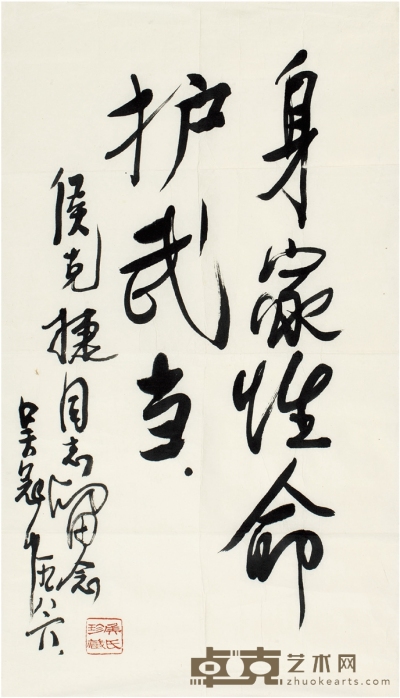 身家性命
护武当.
侯克捷同志留念
吴冠中 八六.
侯氏珍藏
卓克艺术网
zhuokearts.com